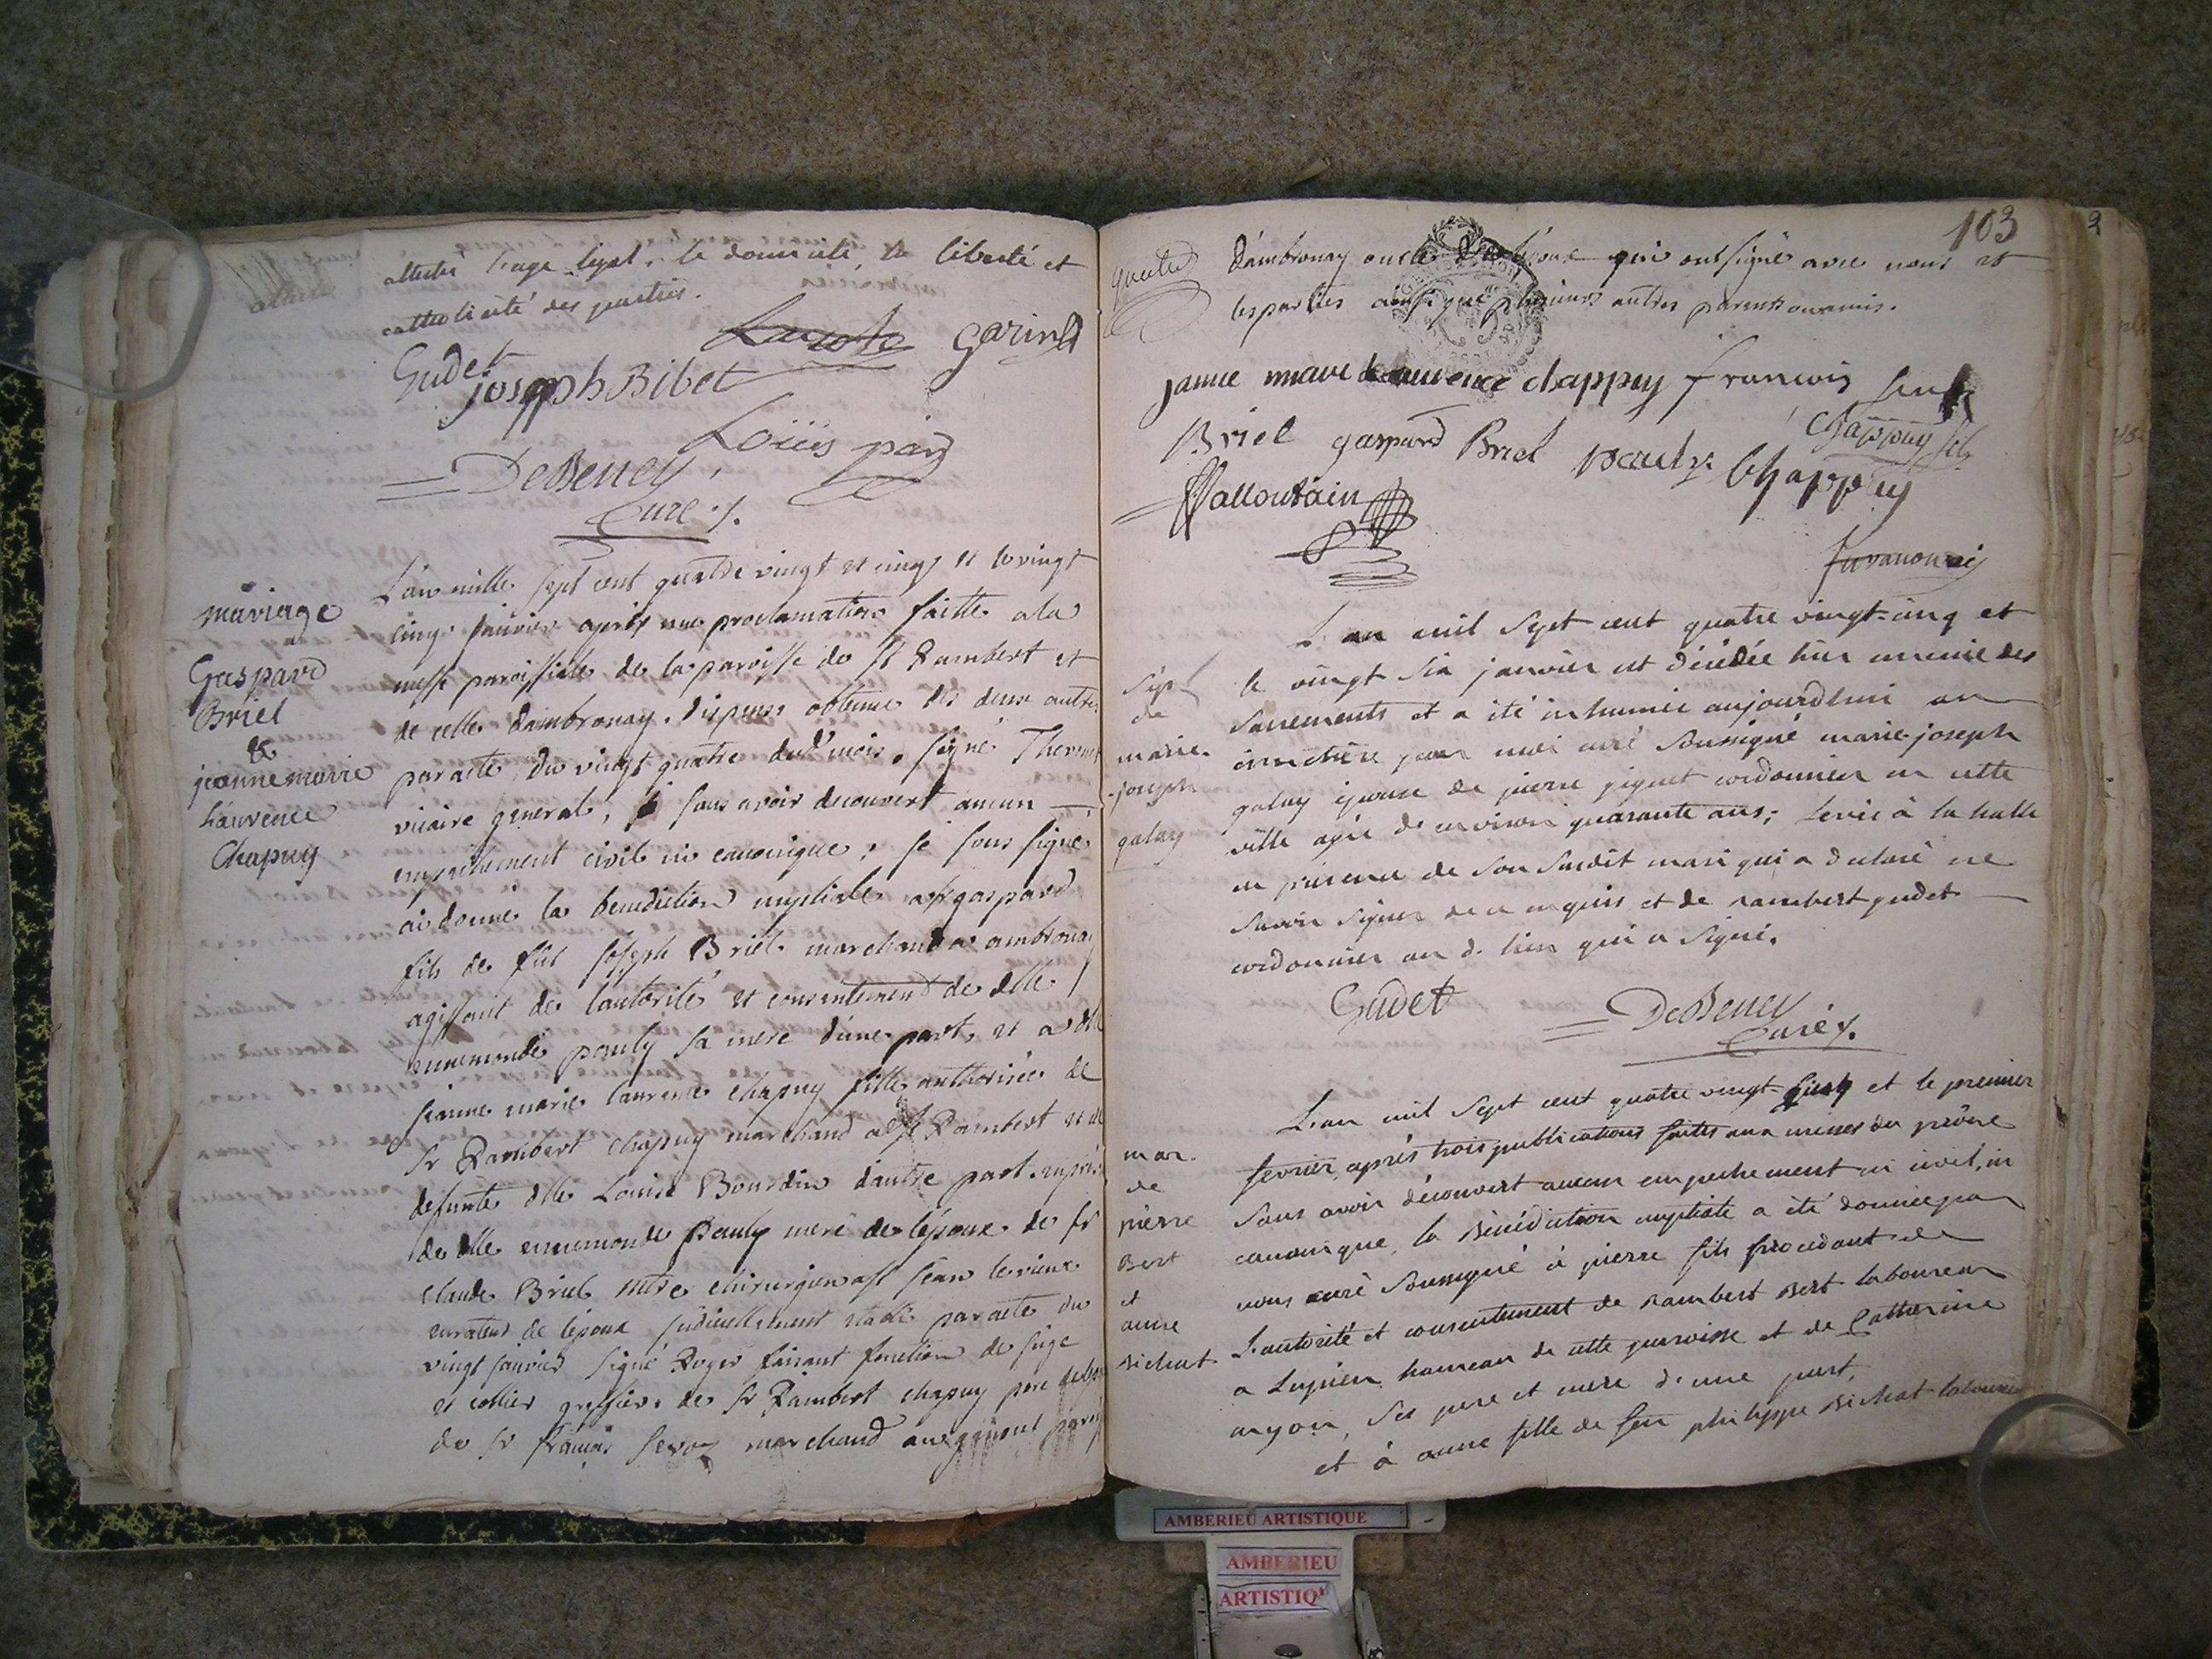 attesté l'age legal, le domicile, la liberté et
catholicité des parties.
Lacoste Garin
Gudet
joseph Bibet
Loüis
DeBeney
Curé
mariage
Gaspard
Briel
&
jeanne marie
Laurence
Chapuy
L'an mille sept cent quatre vingt et cinq et le vingt
cinq janvier après une proclamation faitte a la
messe paroissiale de la paroisse de st Rambert et
de celle dambronay, dispense obtenue des deux autres
par acte du vingt quatre dud' mois, signé
vicaire general, sans avoir decouvert aucun
empechement civil ni canonique, je sous signé
ai donné la benediction nuptiale a sr gaspard
fils de fût joseph Briel marchand a ambronay
agissant de l'autorité et consentement de dlle
ennemonde pauly sa mere d'une part, et a dlle
jeanne marie laurence chapuy fille authorisée de
sr Rambert chapuy marchand a st Rambert et de
defunte dlle Louise Bourdin d'autre part.
de dlle ennemonde Pauly mere de l'époux de sr
claude Briel mtre chirurgien a st jean le vieux
curateur de l'epoux judiciellement etabli par acte du
vingt janvier signé Roger faisant fonction de juge
et collier greffier, de sr Rambert chapuy pere
de sr françois marchand
103
2
d'ambronay oncle qui ont signé avec nous et
les parties ainsi que plusieurs autres parents ou amis.
janne marie laurence chappuy francois
Briel gaspard Briel Chappuy fils
pauly Chappuy
Sep
de
marie
joseph
galay
L'an mil sept cent quatre vingt-cinq et
le vingt six janvier est décédée hier munie des
sacrements et a été inhumée aujourdhui au
cimetière par moi curé soussigné marie-joseph
galay epouse de pierre piquet cordonnier en cette
ville agée de environ quarante ans; levée à la halle
en présence de son susdit mari qui a declaré ne
savoir signer de ce enquis et de rambert gudet
cordonnier au d. lieu qui a signé.
Gudet
DeBeney
Curé
mar.
de
pierre
Bert
et
anne
Bichat
L'an mil sept cent quatre vingt-cinq et le premier
fevrier, après trois publications faites aux messes du prône
sans avoir découvert aucun empechement ni civil, ni
canonique, la Bénédiction nuptiale a été donnée par
nous curé soussigné à pierre fils procedant de
L'autorité et consentement de rambert Bert laboureur
a hameau de cette paroisse et de Catherine
ses pere et mere d'une part,
et à anne fille de feu philippe Bichat laboureur
AMBERIEU ARTISTIQUE
AMBERIEU
ARTISTIQ